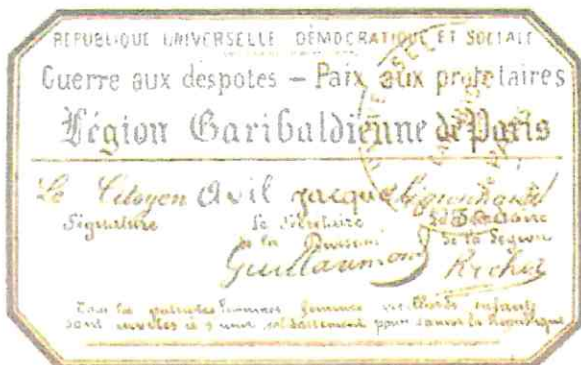 REPUBLIQUE UNIVERSELLE DÉMOCRATIQUE ET SOCIALE
Guerre aux despotes – Paix aux proletaires
Légion Garibaldienne de Paris
Le Citoyen Avil Jacque
Signature Le Secrétaire
de la
Guillaumond
Tous les patriotes hommes femmes vieillards enfants
sont invités à s'unir solidairement pour sauver la République